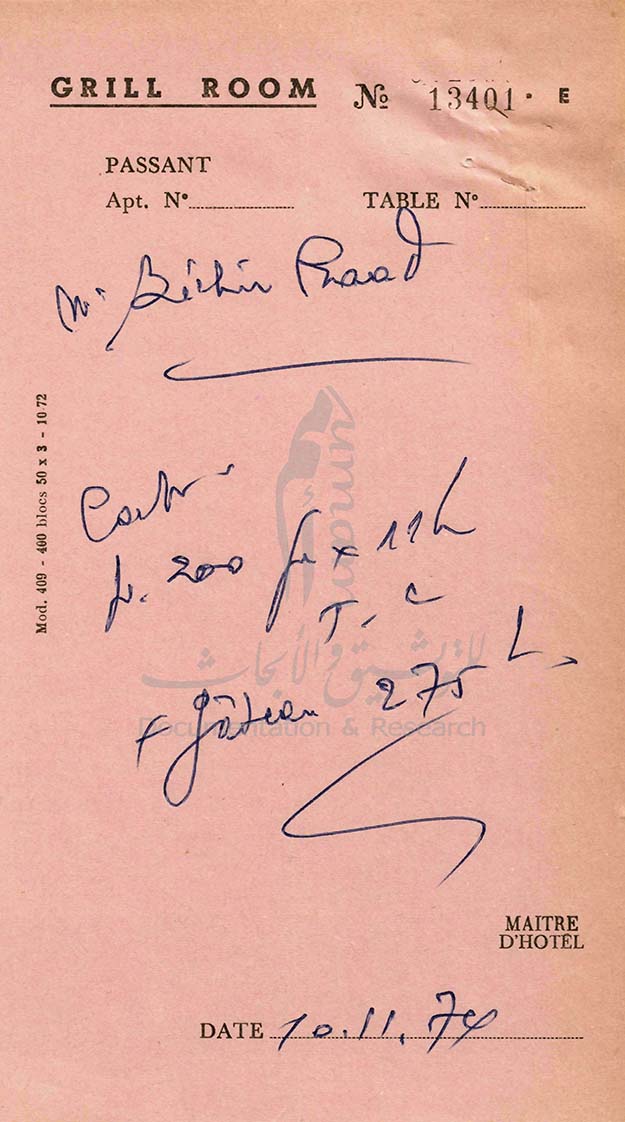 GRILL ROOM № 13401 · E
PASSANT
Apt. N°
TABLE N°
Mr Béchir
200 x 11 L
T. C
+ Gâteau 275 L
Mod. 409 - 400 blocs 50 x 3 - 10-72
umam
للتوثيق والأبحاث
Documentation & Research
MAITRE
D'HOTEL
DATE 10.11.74